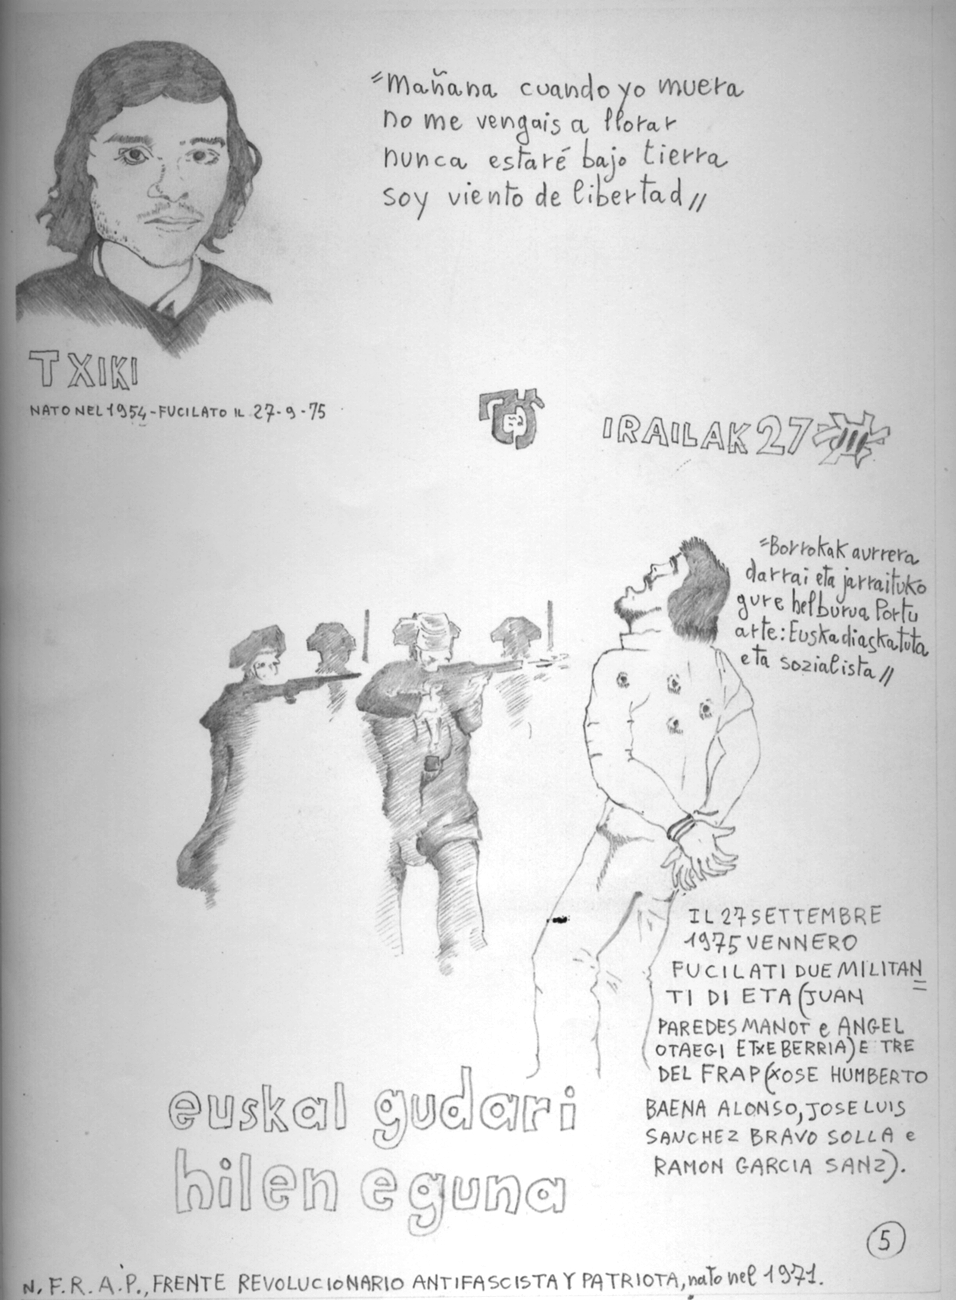 "Mañana cuando yo muera
no me vengais a llorar
nunca estaré bajo tierra
soy viento de libertad"
TXIKI
NATO NEL 1954 - FUCILATO IL 27-9-75
IRAILAK 27
"Borrokak aurrera
darrai eta jarraituko
gure helburua lortu
arte: Euskadi askatuta
eta sozialista"
IL 27 SETTEMBRE
1975 VENNERO
FUCILATI DUE MILITAN=
TI DI ETA (JUAN
PAREDES MANOT e ANGEL
OTAEGI ETXEBERRIA) E TRE
DEL FRAP (XOSE HUMBERTO
BAENA ALONSO, JOSE LUIS
SANCHEZ BRAVO SOLLA e
RAMON GARCIA SANZ).
euskal gudari
hilen eguna
5
N. F.R.A.P., FRENTE REVOLUCIONARIO ANTIFASCISTA Y PATRIOTA, nato nel 1971.